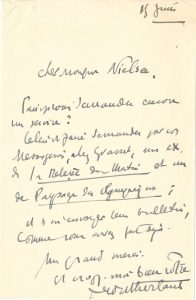 15 juin
Cher Monsieur Nielsen.
Puis-je vous demander encore
un service ?
Celui de demander par vos
Messageries, chez Grasset, un ex.
de la Relève du Matin et un
de Paysage des Olympiques ;
et de m'envoyer leur bulletin,
comme vous avez fait déjà.
Un grand merci.
et croyez-moi bien vôtre
Montherlant